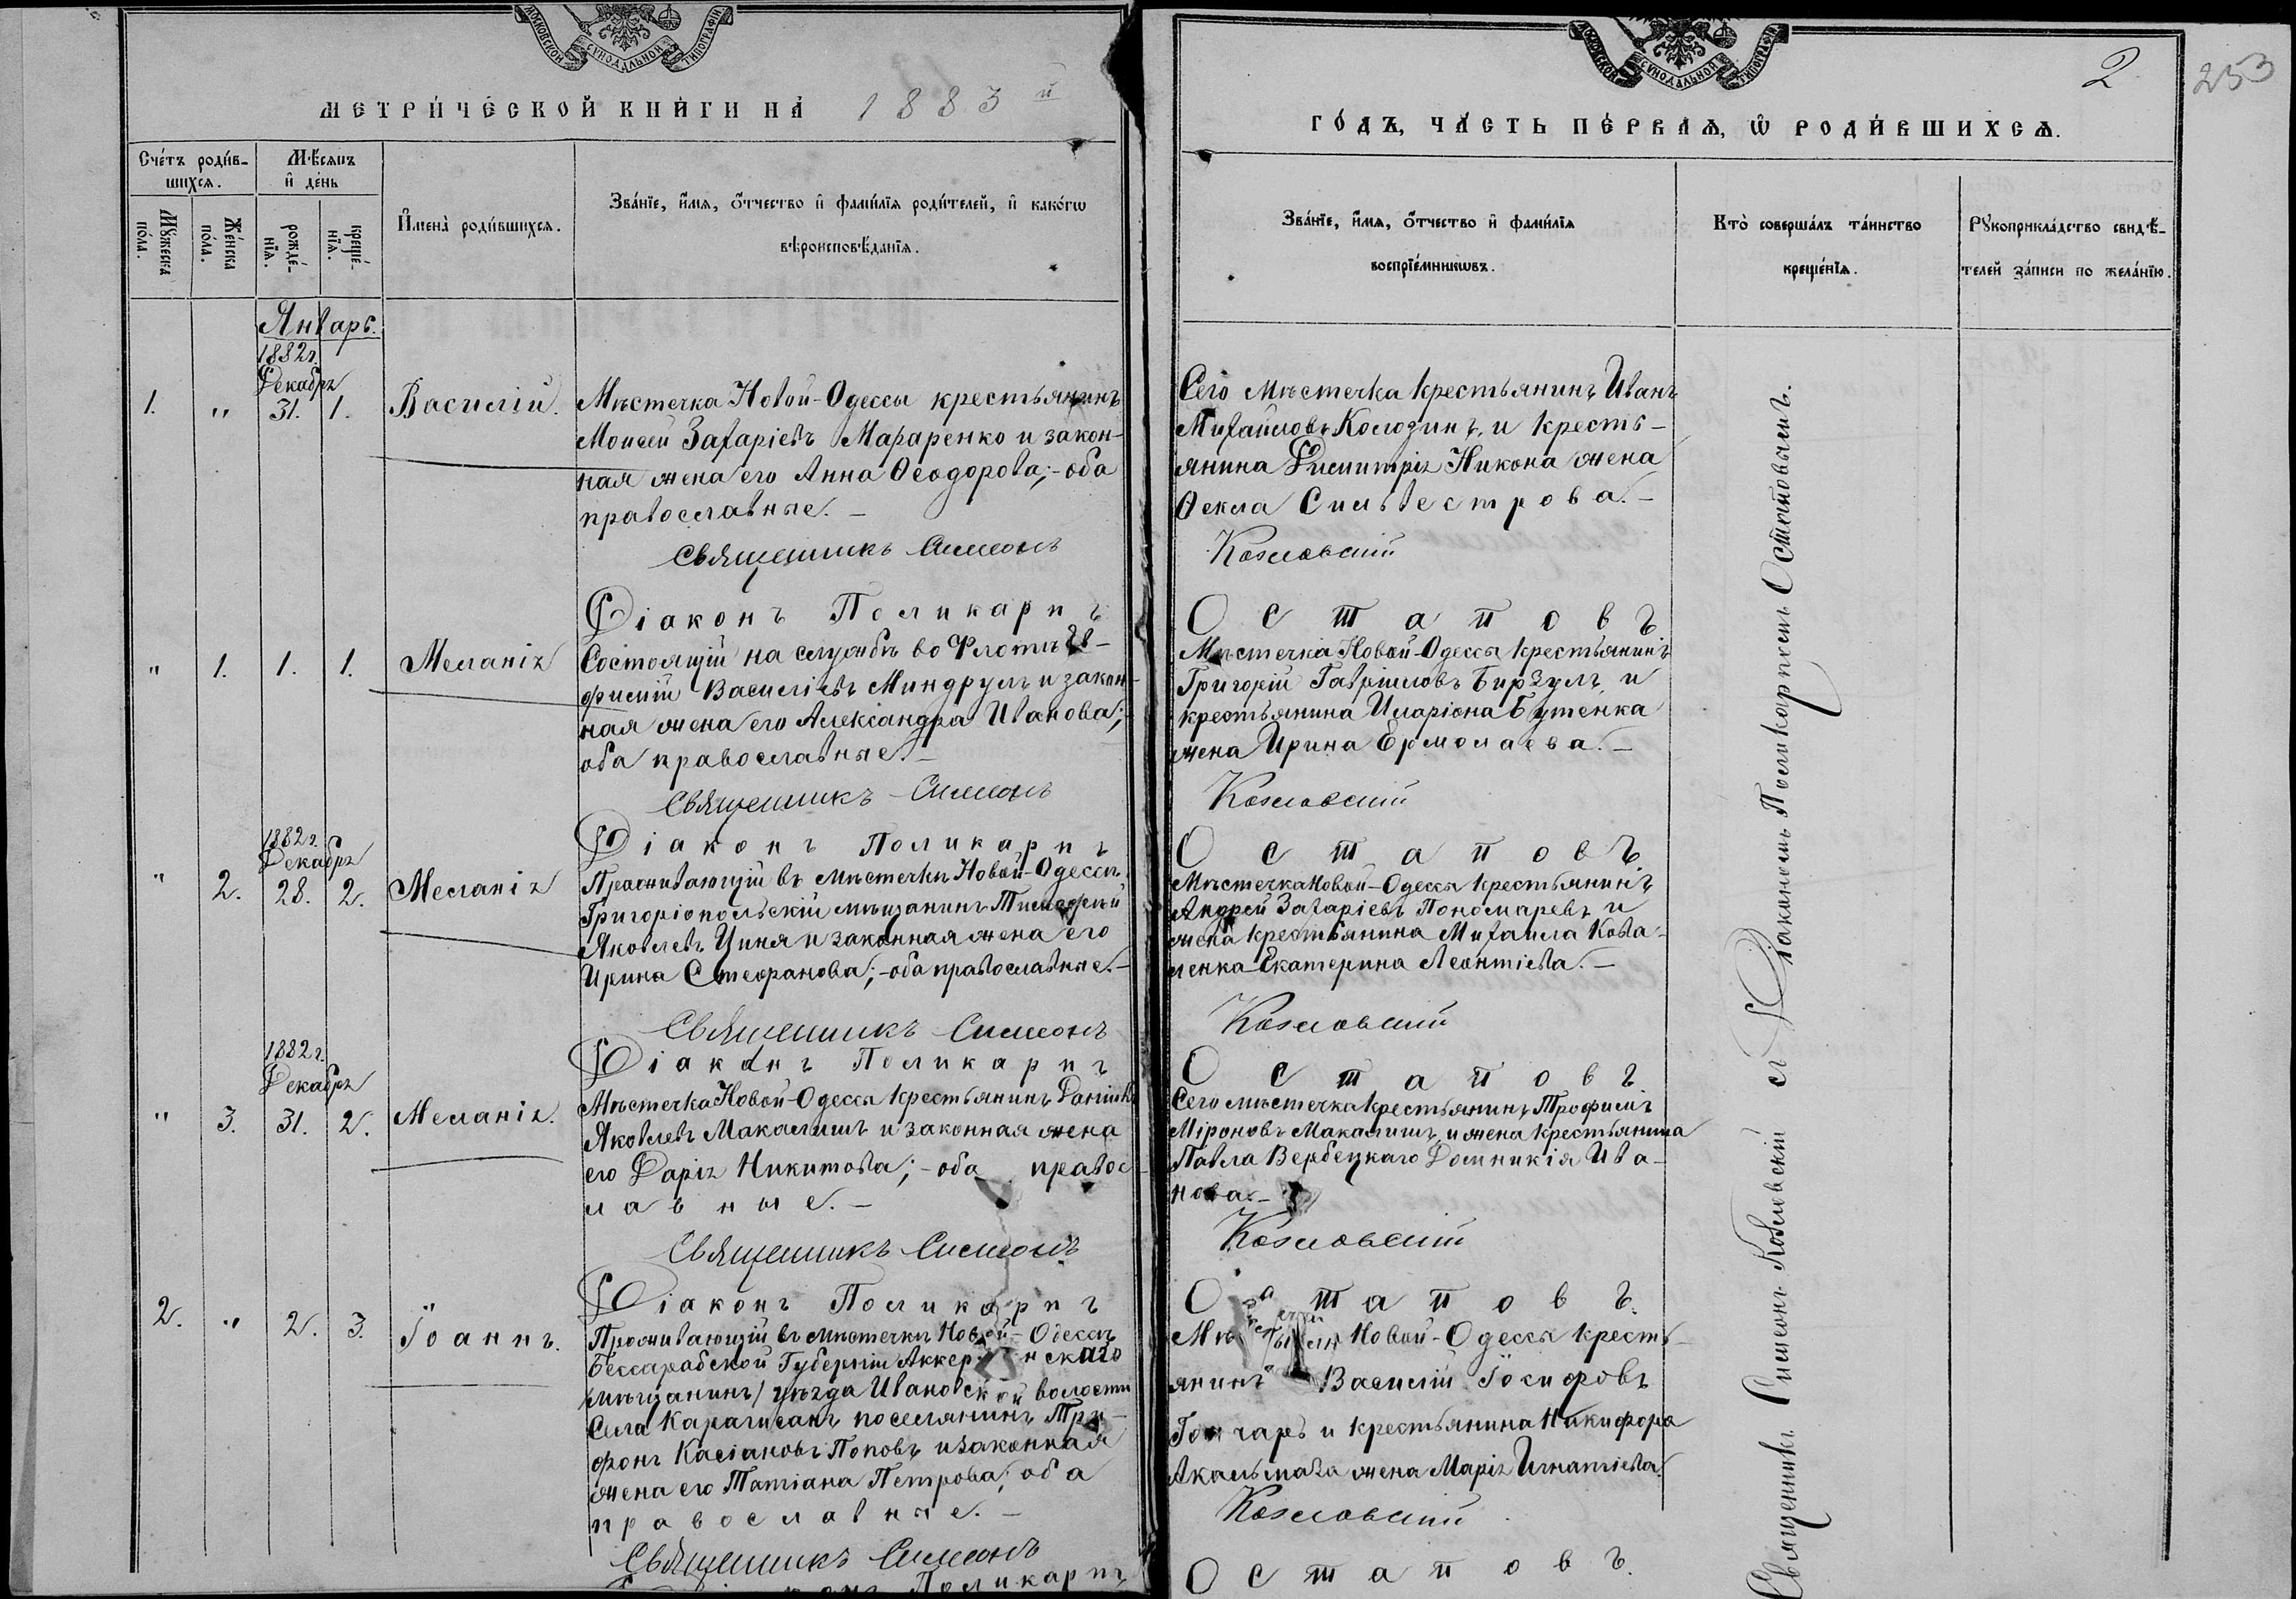 МОСКОВСКОЙ СУНОДАЛЬНОЙ ТИПОГРАФІИ
МЕТРИ́ЧЕСКОЙ КНИ́ГИ НА 1883 й
Сче́тъ роди́в-
шихсѧ.
Мѣ́сѧцъ
и҆ де́нь
Мꙋ́жеска
по́ла.
Же́нска
по́ла.
рожде́-
нїѧ.
креще́-
нїѧ.
И҆мена̀ роди́вшихсѧ.
Зва́нїе, и҆́мѧ, ѻ҆́тчество и҆ фами́лїѧ роди́телей, и҆ како́гѡ
вѣроисповѣ́данїѧ.
Январь.
1882 г.
Декабря
1. " 31. 1. Василій.
Мѣстечка Новой-Одессы крестьянинъ
Моисей Захаріевъ Мафаренко и закон-
ная жена его Анна Ѳеодорова; - оба
православные. -
Священникъ Симеонъ
Діаконъ Поликарпъ
" 1. 1. 1. Меланія
Состоящій на службѣ во Флотѣ Ев-
фимій Василіевъ Миндрулъ и закон-
ная жена его Александра Иванова;
оба православные. -
Священникъ Симеонъ
Діаконъ Поликарпъ
1882 г.
Декабря
" 2. 28. 2. Меланія
Проживающій въ мѣстечкѣ Новой-Одессѣ
Григоріопольскій мѣщанинъ Тимофей
Яковлевъ Циня и законная жена его
Ирина Стефанова; - оба православные. -
Священникъ Симеонъ
Діаконъ Поликарпъ
1882 г.
Декабря
" 3. 31. 2. Меланія.
Мѣстечка Новой-Одессы крестьянинъ Даніилъ
Яковлевъ Макалишъ и законная жена
его Дарія Никитова; - оба правос-
лавные. -
Священникъ Симеонъ
Діаконъ Поликарпъ
2. " 2. 3. Іоаннъ.
Проживающій въ мѣстечкѣ Новой-Одессѣ
Бессарабской Губерніи Аккерманскаго
(мѣщанинъ) уѣзда Ивановской волости
Села Карагисанъ поселянинъ Три-
фонъ Касіановъ Поповъ и законная
жена его Татіана Петрова; оба
православные. -
Священникъ Симеонъ
Поликарпъ
МОСКОВСКОЙ СУНОДАЛЬНОЙ ТИПОГРАФІИ
2
253
ГО́ДЪ, ЧА́СТЬ ПЕ́РВАѦ, Ѡ҆ РОДИ́ВШИХСѦ.
Зва́нїе, и҆́мѧ, ѻ҆́тчество и҆ фами́лїѧ
воспрїе́мникѡвъ.
Кто̀ соверша́лъ та́инство
креще́нїѧ.
Рꙋкоприкла́дство свидѣ́-
телей за́писи по жела́нїю.
Сего мѣстечка крестьянинъ Иванъ
Михайловъ Колодинъ, и кресть-
янина Димитрія Никона жена
Ѳекла Сильвестрова. -
Козловскій
Остаповъ
Мѣстечка Новой-Одессы крестьянинъ
Григорій Гавріиловъ Бирзулъ, и
крестьянина Иларіона Бутенка
жена Ирина Ермолаева. -
Козловскій
Остаповъ
Мѣстечка Новой-Одессы крестьянинъ
Андрей Захаріевъ Пономаревъ и
жена крестьянина Михаила Кова-
ленка Екатерина Леонтіева. -
Козловскій
Остаповъ
Сего мѣстечка крестьянинъ Трофимъ
Міроновъ Макалишъ, и жена крестьянина
Павла Вербецкаго Домникія Ива-
нова. -
Козловскій
Остаповъ.
Новой-Одессы кресть-
янинъ Василій Іосифовъ
Гончаръ и крестьянина Никифора
Акальмаза жена Марія Игнатіева.
Козловскій
Остаповъ.
Священникъ Симеонъ Козловскій съ Діакономъ Поликарпомъ Остаповымъ.